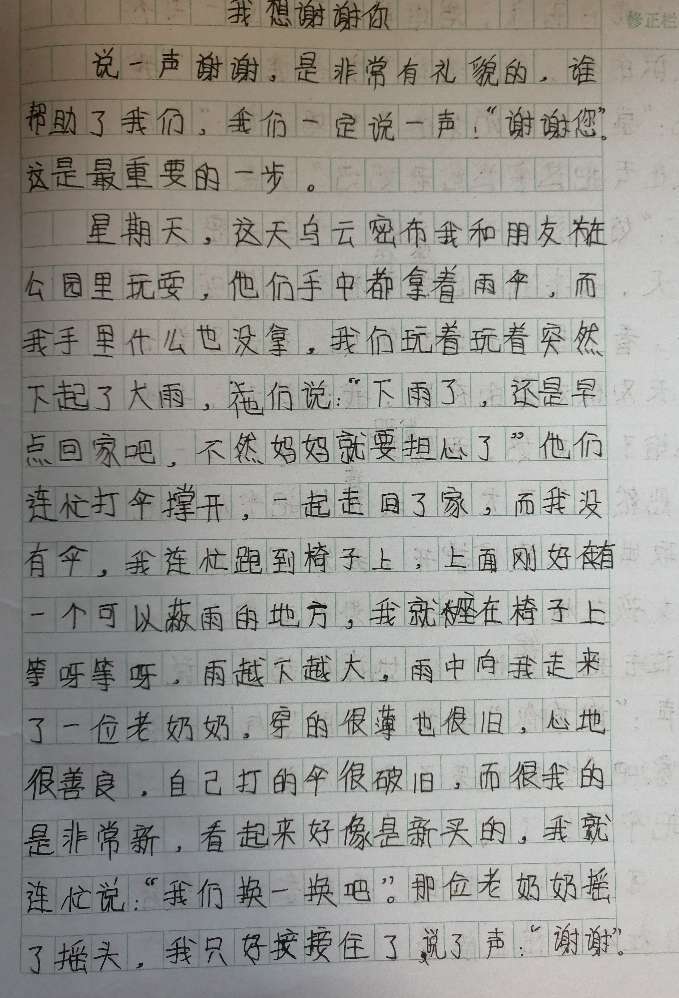 我想谢谢你
修正栏
说一声谢谢，是非常有礼貌的，谁
帮助了我们，我们一定说一声：“谢谢您”。
这是最重要的一步。
星期天，这天乌云密布我和朋友在
公园里玩耍，他们手中都拿着雨伞，而
我手里什么也没拿，我们玩着玩着突然
下起了大雨，他们说：“下雨了，还是早
点回家吧，不然妈妈就要担心了”他们
连忙打伞撑开，一起走回了家，而我没
有伞，我连忙跑到椅子上，上面刚好有
一个可以蔽雨的地方，我就座在椅子上
等呀等呀，雨越下越大。雨中向我走来
了一位老奶奶，穿的很薄也很旧，心地
很善良，自己打的伞很破旧，而很我的
是非常新，看起来好像是新买的，我就
连忙说：“我们换一换吧”。那位老奶奶摇
了摇头，我只好接接住了，说了声：“谢谢”。